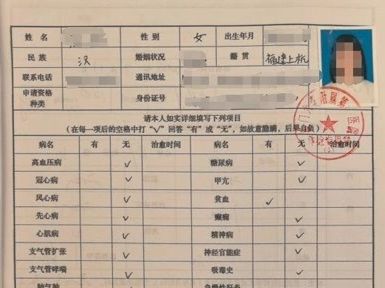 姓 名 性 别 女 出生年月
民 族 汉 婚姻状况 籍 贯 福建上杭
联系电话 通讯地址
申请资格种类 身份证号
请本人如实详细填写下列项目
(在每一项后的空格中打“√”回答“有”或“无”,如故意隐瞒,后果自负)
病名 有 无 治愈时间 病名 有 无 治愈时间
高血压病 √ 糖尿病 √
冠心病 √ 甲亢 √
风心病 √ 贫血 √
先心病 √ 癫痫 √
心肌病 √ 精神病 √
支气管扩张 √ 神经官能症 √
支气管哮喘 √ 吸毒史 √
肺气肿